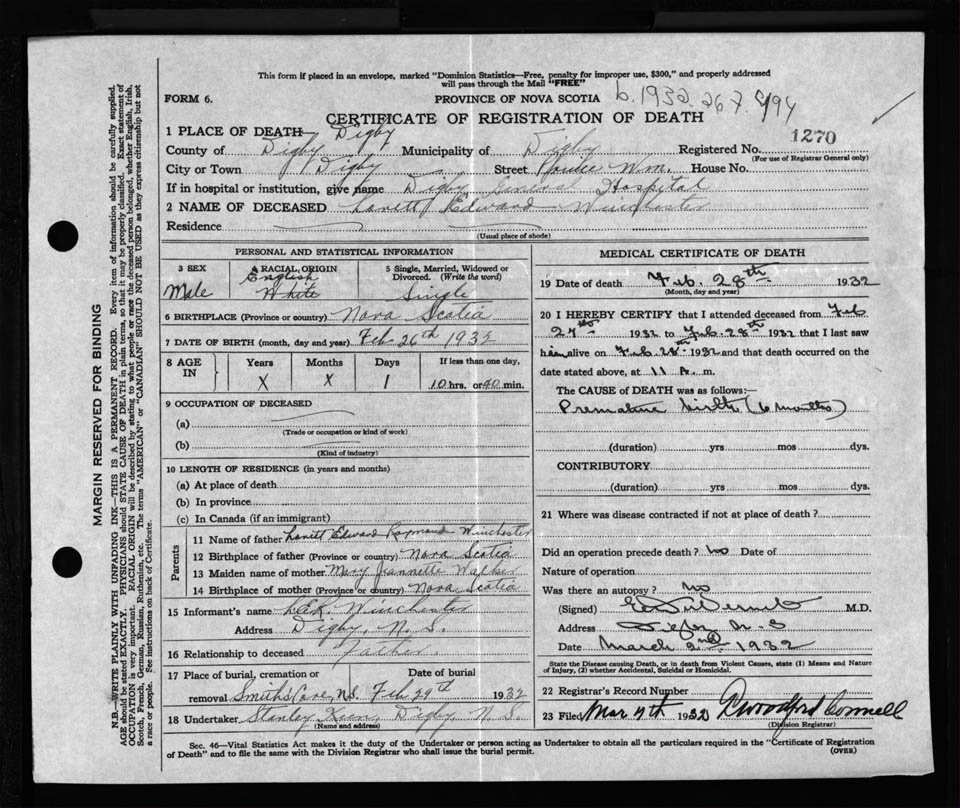 This form if placed in an envelope, marked "Dominion Statistics—Free, penalty for improper use, $300," and properly addressed
will pass through the Mail "FREE"
FORM 6. PROVINCE OF NOVA SCOTIA b. 1932. 267
CERTIFICATE OF REGISTRATION OF DEATH
1 PLACE OF DEATH— Digby 1270
County of Digby Municipality of Digby Registered No.
(For use of Registrar General only)
City or Town Digby Street Prince Wm. House No.
If in hospital or institution, give name Digby General Hospital
2 NAME OF DECEASED Lovett Edward Winchester
Residence
(Usual place of abode)
PERSONAL AND STATISTICAL INFORMATION
3 SEX 4 RACIAL ORIGIN 5 Single, Married, Widowed or
Divorced. (Write the word)
English
Male White Single
6 BIRTHPLACE (Province or country) Nova Scotia
7 DATE OF BIRTH (month, day and year) Feb. 26th 1932
8 AGE IN Years Months Days If less than one day,
X X 1 10 hrs. or 40 min.
9 OCCUPATION OF DECEASED
(a)
(Trade or occupation or kind of work)
(b)
(Kind of industry)
10 LENGTH OF RESIDENCE (in years and months)
(a) At place of death
(b) In province
(c) In Canada (if an immigrant)
Parents
11 Name of father Lovett Edward Raymond Winchester
12 Birthplace of father (Province or country) Nova Scotia
13 Maiden name of mother Mary Jeannette Walker
14 Birthplace of mother (Province or country) Nova Scotia
15 Informant's name L.E.R. Winchester
Address Digby, N. S.
16 Relationship to deceased Father.
17 Place of burial, cremation or Date of burial
removal Smith's Cove, N.S. Feb 29th 1932
18 Undertaker Stanley Digby, N. S.
(Name and address)
MEDICAL CERTIFICATE OF DEATH
19 Date of death Feb. 28th 1932
(Month, day and year)
20 I HEREBY CERTIFY that I attended deceased from Feb
27th 1932 to Feb. 28th 1932 that I last saw
him alive on Feb. 28th 1932 and that death occurred on the
date stated above, at 11 A. m.
The CAUSE of DEATH was as follows:—
Premature birth (6 months)
(duration) yrs mos dys.
CONTRIBUTORY
(duration) yrs mos dys.
21 Where was disease contracted if not at place of death?
Did an operation precede death? No Date of
Nature of operation
Was there an autopsy? No
(Signed) M.D.
Address Digby N. S
Date March 2nd 1932
State the Disease causing Death, or in death from Violent Causes, state (1) Means and Nature
of Injury, (2) whether Accidental, Suicidal or Homicidal.
22 Registrar's Record Number
23 Filed Mar 7th 1932
(Division Registrar)
Sec. 46—Vital Statistics Act makes it the duty of the Undertaker or person acting as Undertaker to obtain all the particulars required in the "Certificate of Registration
of Death" and to file the same with the Division Registrar who shall issue the burial permit. (OVER)
MARGIN RESERVED FOR BINDING
N.B. WRITE PLAINLY WITH UNFADING INK—THIS IS A PERMANENT RECORD. Every item of information should be carefully supplied.
AGE should be stated EXACTLY. PHYSICIANS should STATE CAUSE OF DEATH in plain terms, so that it may be properly classified. Exact statement of
OCCUPATION is very important. RACIAL ORIGIN will be described by stating to what people or race the deceased person belonged, whether English, Irish,
Scotch, French, German, Russian, Ruthenian, etc. The terms "AMERICAN" or "CANADIAN" SHOULD NOT BE USED as they express citizenship but not
a race or people. See instructions on back of Certificate.